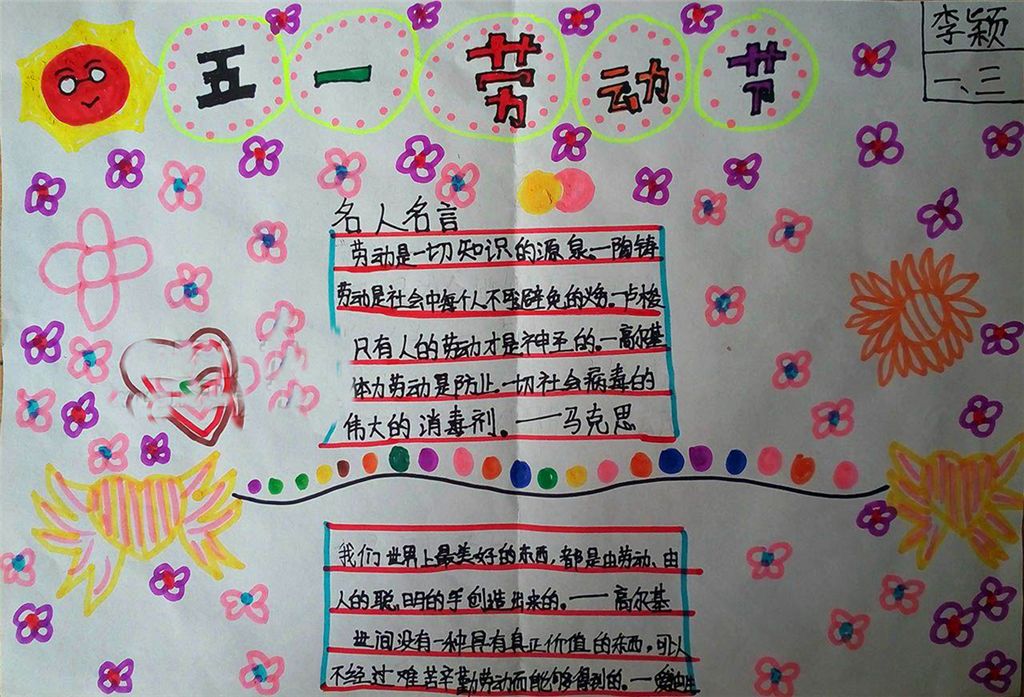 五一劳动节
李颖
一、三
名人名言
劳动是一切知识的源泉。—陶铸
劳动是社会中每个人不可避免的义务。—卢梭
只有人的劳动才是神圣的。—高尔基
体力劳动是防止一切社会病毒的
伟大的消毒剂。——马克思
我们世界上最美好的东西，都是由劳动、由
人的聪明的手创造出来的。——高尔基
世间没有一种具有真正价值的东西，可以
不经过难苦辛勤劳动而能够得到的。—爱迪生